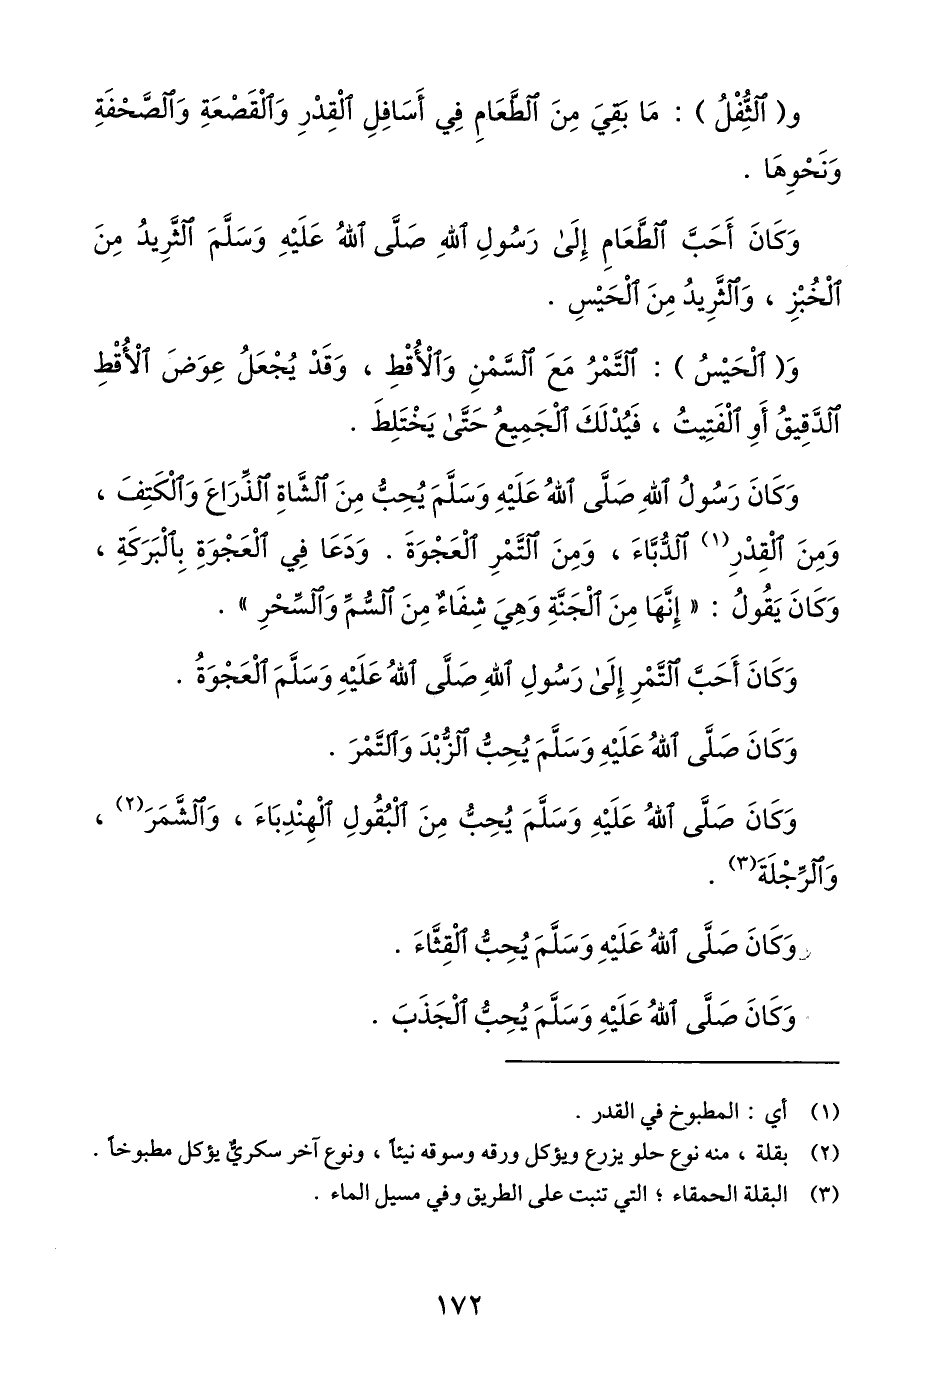 و( ٱلثُّفْلُ ) : مَا بَقِيَ مِنَ ٱلطَّعَامِ فِي أَسَافِلِ ٱلْقِدْرِ وَٱلْقَصْعَةِ وَٱلصَّحْفَةِ
وَنَحْوِهَا .
وَكَانَ أَحَبَّ ٱلطَّعَامِ إِلَىٰ رَسُولِ ٱللهِ صَلَّى ٱللهُ عَلَيْهِ وَسَلَّمَ ٱلثَّرِيدُ مِنَ
ٱلْخُبْزِ ، وَٱلثَّرِيدُ مِنَ ٱلْحَيْسِ .
وَ( ٱلْحَيْسُ ) : ٱلتَّمْرُ مَعَ ٱلسَّمْنِ وَٱلْأُقْطِ ، وَقَدْ يُجْعَلُ عِوَضَ ٱلْأُقْطِ
ٱلدَّقِيقُ أَوِ ٱلْفَتِيتُ ، فَيُدْلَكَ ٱلْجَمِيعُ حَتَّىٰ يَخْتَلِطَ .
وَكَانَ رَسُولُ ٱللهِ صَلَّى ٱللهُ عَلَيْهِ وَسَلَّمَ يُحِبُّ مِنَ ٱلشَّاةِ ٱلذِّرَاعَ وَٱلْكَتِفَ ،
وَمِنَ ٱلْقِدْرِ(١) ٱلدُّبَّاءَ ، وَمِنَ ٱلتَّمْرِ ٱلْعَجْوَةَ . وَدَعَا فِي ٱلْعَجْوَةِ بِٱلْبَرَكَةِ ،
وَكَانَ يَقُولُ : « إِنَّهَا مِنَ ٱلْجَنَّةِ وَهِيَ شِفَاءٌ مِنَ ٱلسُّمِّ وَٱلسِّحْرِ » .
وَكَانَ أَحَبَّ ٱلتَّمْرِ إِلَىٰ رَسُولِ ٱللهِ صَلَّى ٱللهُ عَلَيْهِ وَسَلَّمَ ٱلْعَجْوَةُ .
وَكَانَ صَلَّى ٱللهُ عَلَيْهِ وَسَلَّمَ يُحِبُّ ٱلزُّبْدَ وَٱلتَّمْرَ .
وَكَانَ صَلَّى ٱللهُ عَلَيْهِ وَسَلَّمَ يُحِبُّ مِنَ ٱلْبُقُولِ ٱلْهِنْدِبَاءَ ، وَٱلشَّمَرَ(٢) ،
وَٱلرِّجْلَةَ(٣) .
وَكَانَ صَلَّى ٱللهُ عَلَيْهِ وَسَلَّمَ يُحِبُّ ٱلْقِثَّاءَ .
وَكَانَ صَلَّى ٱللهُ عَلَيْهِ وَسَلَّمَ يُحِبُّ ٱلْجَذَبَ .
(١) أي : المطبوخ في القدر .
(٢) بقلة ، منه نوع حلو يزرع ويؤكل ورقه وسوقه نيئاً ، ونوع آخر سكريٌّ يؤكل مطبوخاً .
(٣) البقلة الحمقاء ؛ التي تنبت على الطريق وفي مسيل الماء .
١٧٢